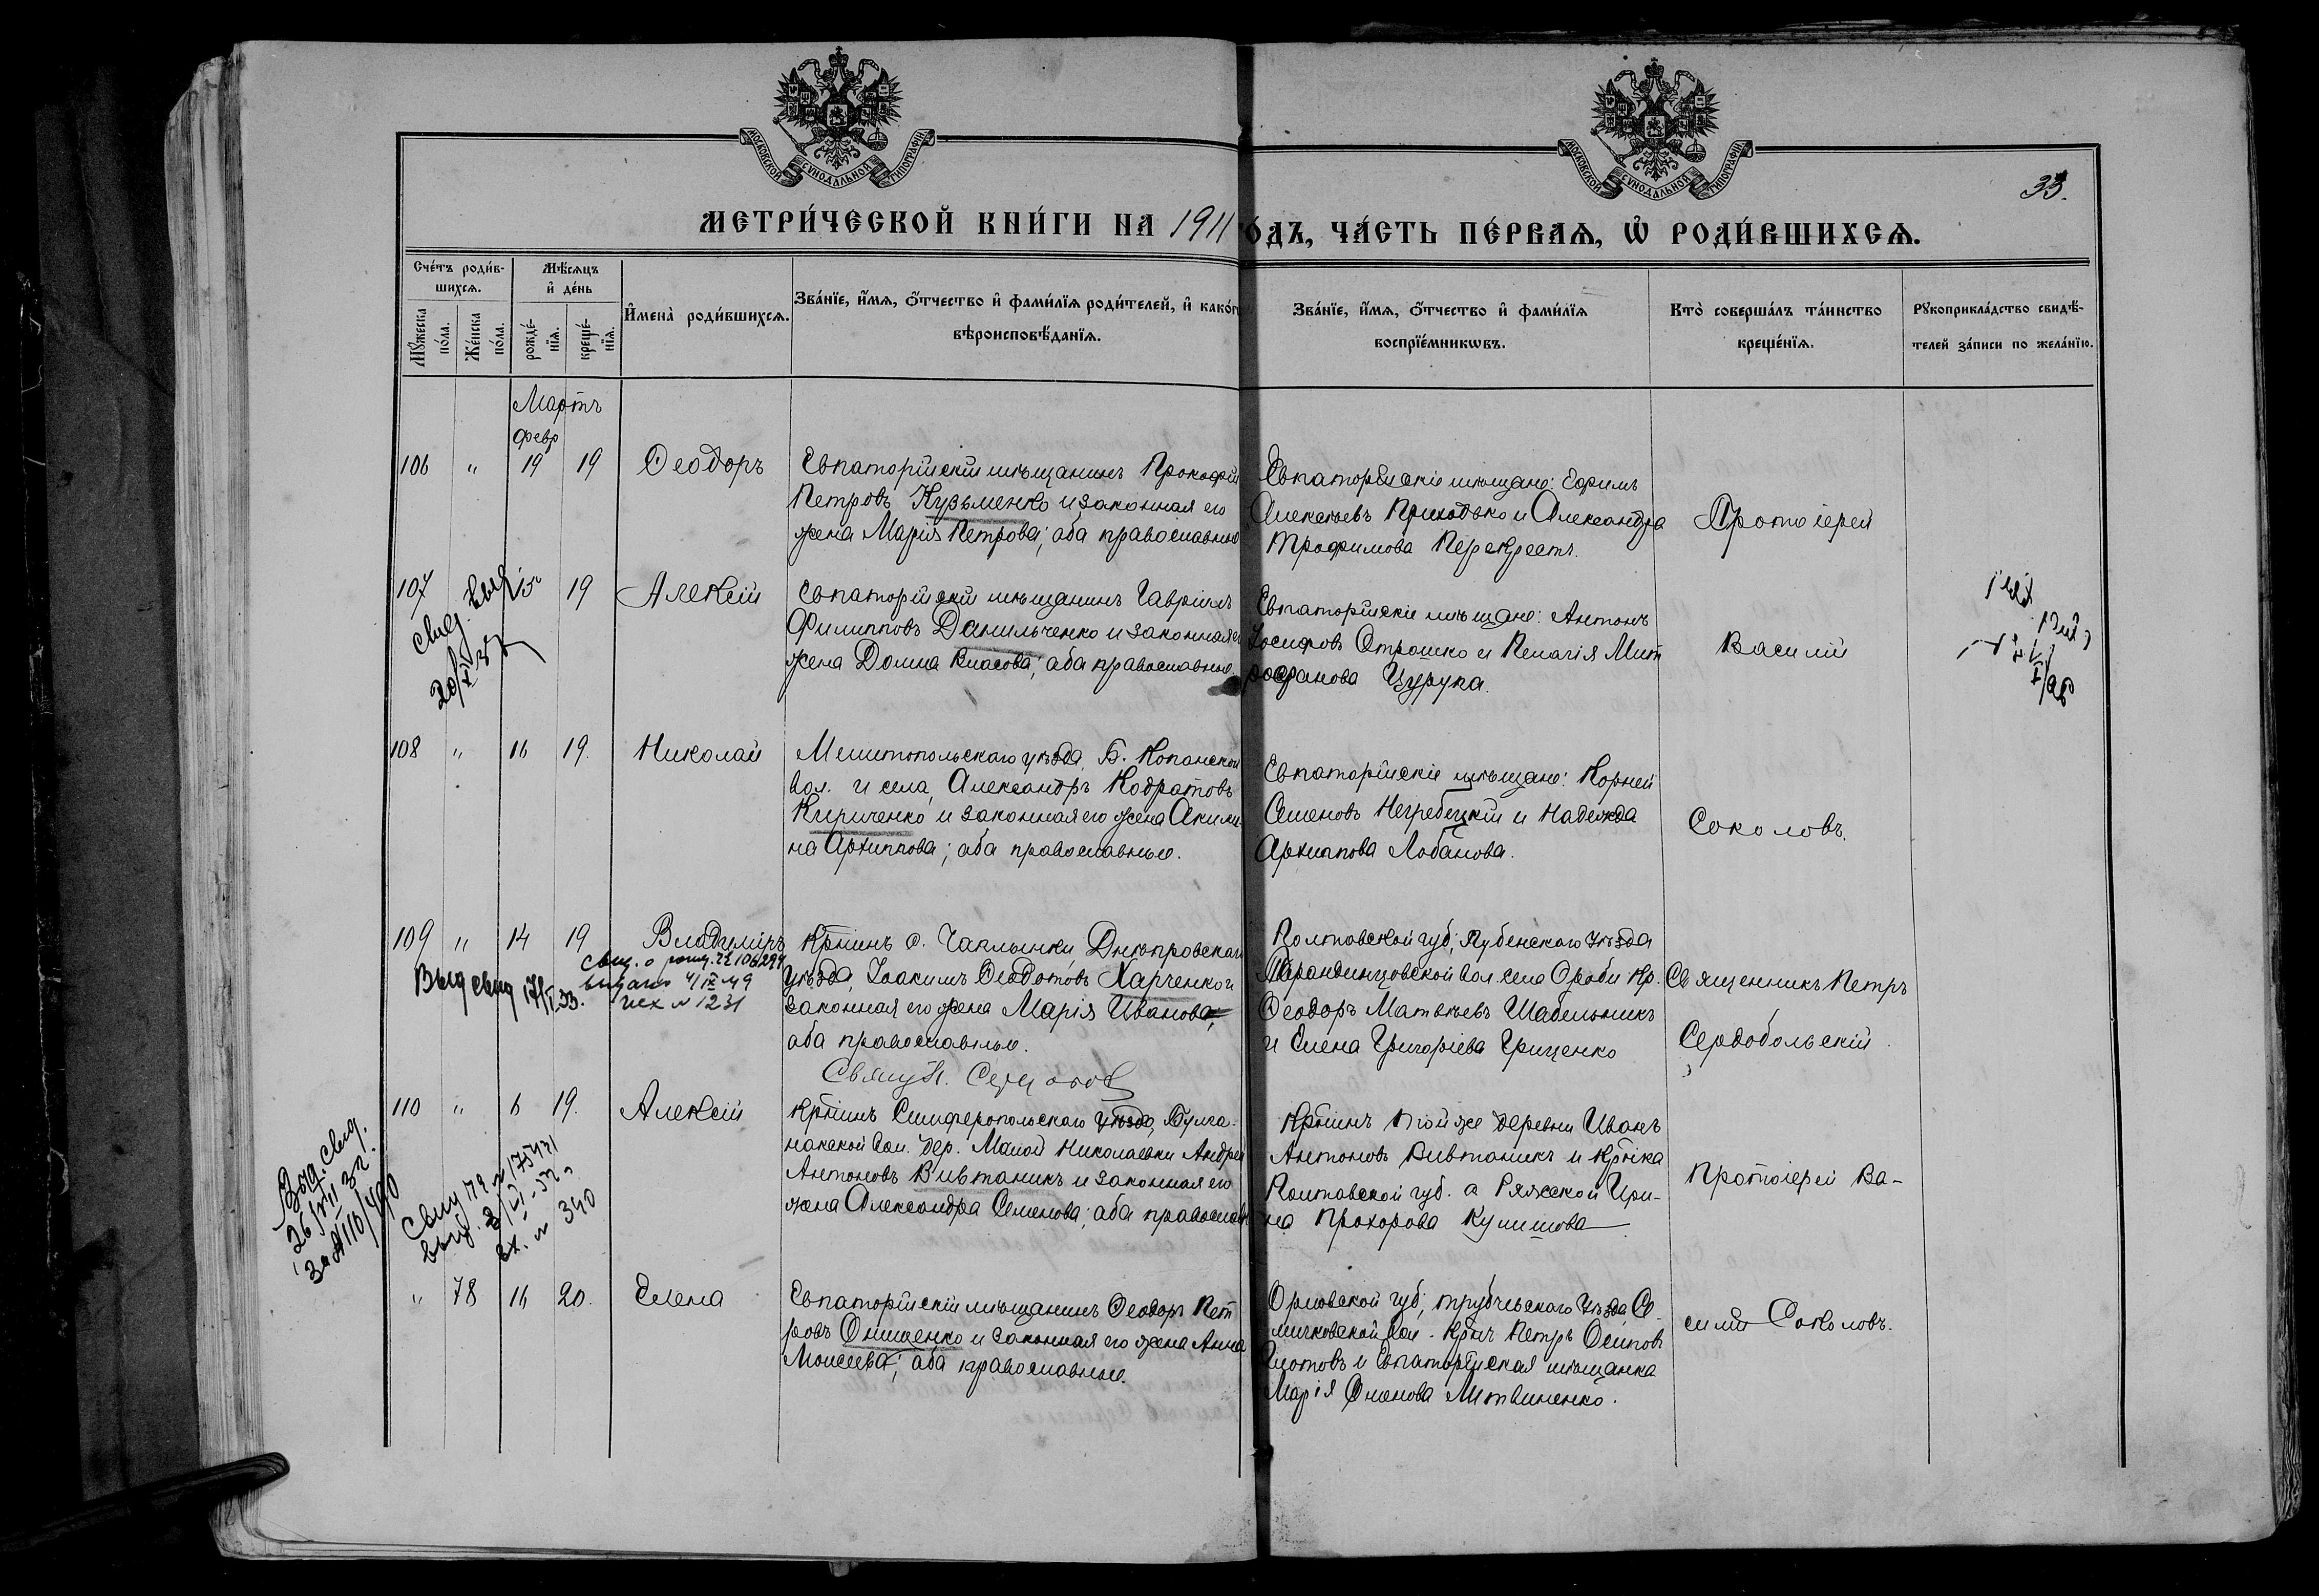 МОСКОВСКОЙ СѴНОДАЛЬНОЙ ТИПОГРАФІИ
МОСКОВСКОЙ СѴНОДАЛЬНОЙ ТИПОГРАФІИ
33.
МЕТРИ́ЧЕСКОЙ КНИ́ГИ НА 1911
О́ДЪ, ЧА́СТЬ ПЕ́РВАѦ, Ѡ҆ РОДИ́ВШИХСѦ.
Сче́тъ роди́в-
шихсѧ.
Мꙋ́жеска
по́ла.
Же́нска
по́ла.
Мѣ́сѧцъ
и҆ де́нь
рожде́-
нїѧ.
креще́-
нїѧ.
И҆мена̀ роди́вшихсѧ.
Зва́нїе, и҆́мѧ, ѻ҆́тчество и҆ фами́лїѧ роди́телей, и҆ како́г
вѣроисповѣ́данїѧ.
Зва́нїе, и҆́мѧ, ѻ҆́тчество и҆ фами́лїѧ
воспрїе́мникѡвъ.
Кто̀ соверша́лъ та́инство
креще́нїѧ.
Рꙋкоприкла́дство свидѣ́-
телей за́писи по жела́нїю.
Мартъ
февр
106 " 19 19 Ѳеодоръ
Евпаторійскій мѣщанинъ Прокофій
Петровъ Кузьменко и законная его
жена Марія Петрова; оба православные
Евпаторійскіе мѣщане: Ефимъ
Алексѣевъ Приходько и Александра
Трофимова Перекрестъ.
Протоіерей
107 15 19 Алексій
свид. выд
20/
Евпаторійскій мѣщанинъ Гавріилъ
Филипповъ Данильченко и законная е
жена Домна Власова; оба православные
Евпаторійскіе мѣщане: Антонъ
Іосифовъ Отрошко и Пелагія Мит
рофанова Цурука.
Василій
108 " 16 19. Николай
Мелитопольскаго уѣзда, Б. Копанской
вол. и села, Александръ Кодратовъ
Кириченко и законная его жена Акили-
на Архиппова; оба православные.
Евпаторійскіе мѣщане: Корней
Семеновъ Негребецкій и Надежда
Архиппова Лобанова.
Соколовъ.
109 " 14 19 Владиміръ
Выд свид 17/I 33.
свид. о рожд.
выдано 4/IX-49
исх № 1231
Крнинъ с. Чаплынки Днѣпровскаго
уѣзда, Іоакимъ Ѳеодотовъ Харченко и
законная его жена Марія Иванова;
оба православные.
Полтавской губ; Лубенскаго уѣзда
вол. села Кр.
Ѳеодоръ Матвѣевъ Шабельникъ
и Елена Григоріева Гриценко
Священникъ Петръ
Сердобольскій.
110 " 6 19. Алексій
Выд. свид.
26/VII 32г.
за № 110/490
Свид
выд.
вх. № 340
Крнинъ Симферопольскаго уѣзда, Булга-
накской вол. дер. Малой Николаевки Андрей
Антоновъ Вивтаникъ и законная его
жена Александра Семенова; оба православн
Крнинъ той же деревни Иванъ
Антоновъ Вивтаникъ и Крнка
Полтавской губ. с Ряжской Ири-
на Прохорова Кулишова
Протоіерей Ва-
" 78 16 20. Елена
Евпаторійскій мѣщанинъ Ѳеодоръ Пет
ровъ Онищенко и законная его жена Анна
Моисеева; оба православные.
Орловской губ; Трубчевскаго уѣзда, Се-
мячковской вол. крнъ Петръ Осиповъ
и Евпаторійская мѣщанка
Марія Семенова Литвиненко.
силій Соколовъ.